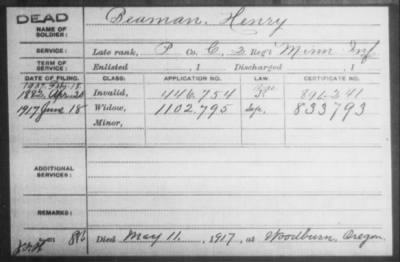 DEAD
NAME OF SOLDIER: Beaman, Henry
SERVICE: Late rank, P Co. C, 2 Reg't Minn Inf
TERM OF SERVICE: Enlisted , 1 Discharged , 1
DATE OF FILING. CLASS. APPLICATION NO. LAW. CERTIFICATE NO.
1882, Apr. 20 Invalid, 446.754 896.241
1917 June 18 Widow, 1102.795 Sep. 833793
Minor,
ADDITIONAL SERVICES:
REMARKS:
Died May 11, 1917, at Woodburn, Oregon.